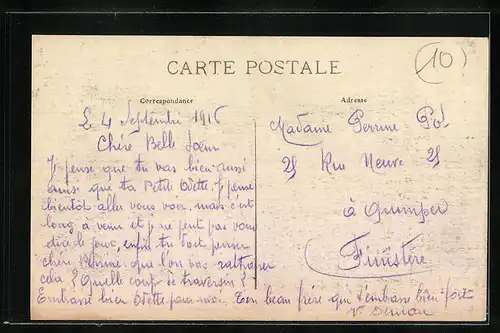 10
CARTE POSTALE
Correspondance
Adresse
Le 4 Septembre 1916
Chère Belle Sœur
Je pense que tu vas bien aussi
ainsi que ta Petite Odette. Je pense
bientôt aller vous voir. mais c'est
long à venir et je ne peut pas vous
dire le jour, enfin tu doit penser
chère Perrine que l'on vas rattraper
cela ? Quelle coup de traversin ?
Embrasse bien Odette pour moi. Ton beau frère qui t'embrasse bien fort
Madame Perrine Pol
25 Rue Neuve 25
à Quimper
Finistère